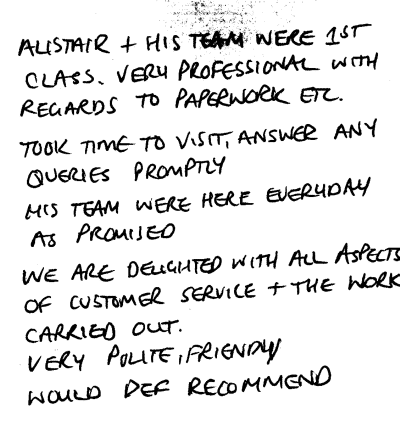 ALISTAIR + HIS TEAM WERE 1ST
CLASS. VERY PROFESSIONAL WITH
REGARDS TO PAPERWORK ETC.
TOOK TIME TO VISIT, ANSWER ANY
QUERIES PROMPTLY
HIS TEAM WERE HERE EVERYDAY
AS PROMISED
WE ARE DELIGHTED WITH ALL ASPECTS
OF CUSTOMER SERVICE + THE WORK
CARRIED OUT.
VERY POLITE, FRIENDLY
WOULD DEF RECOMMEND